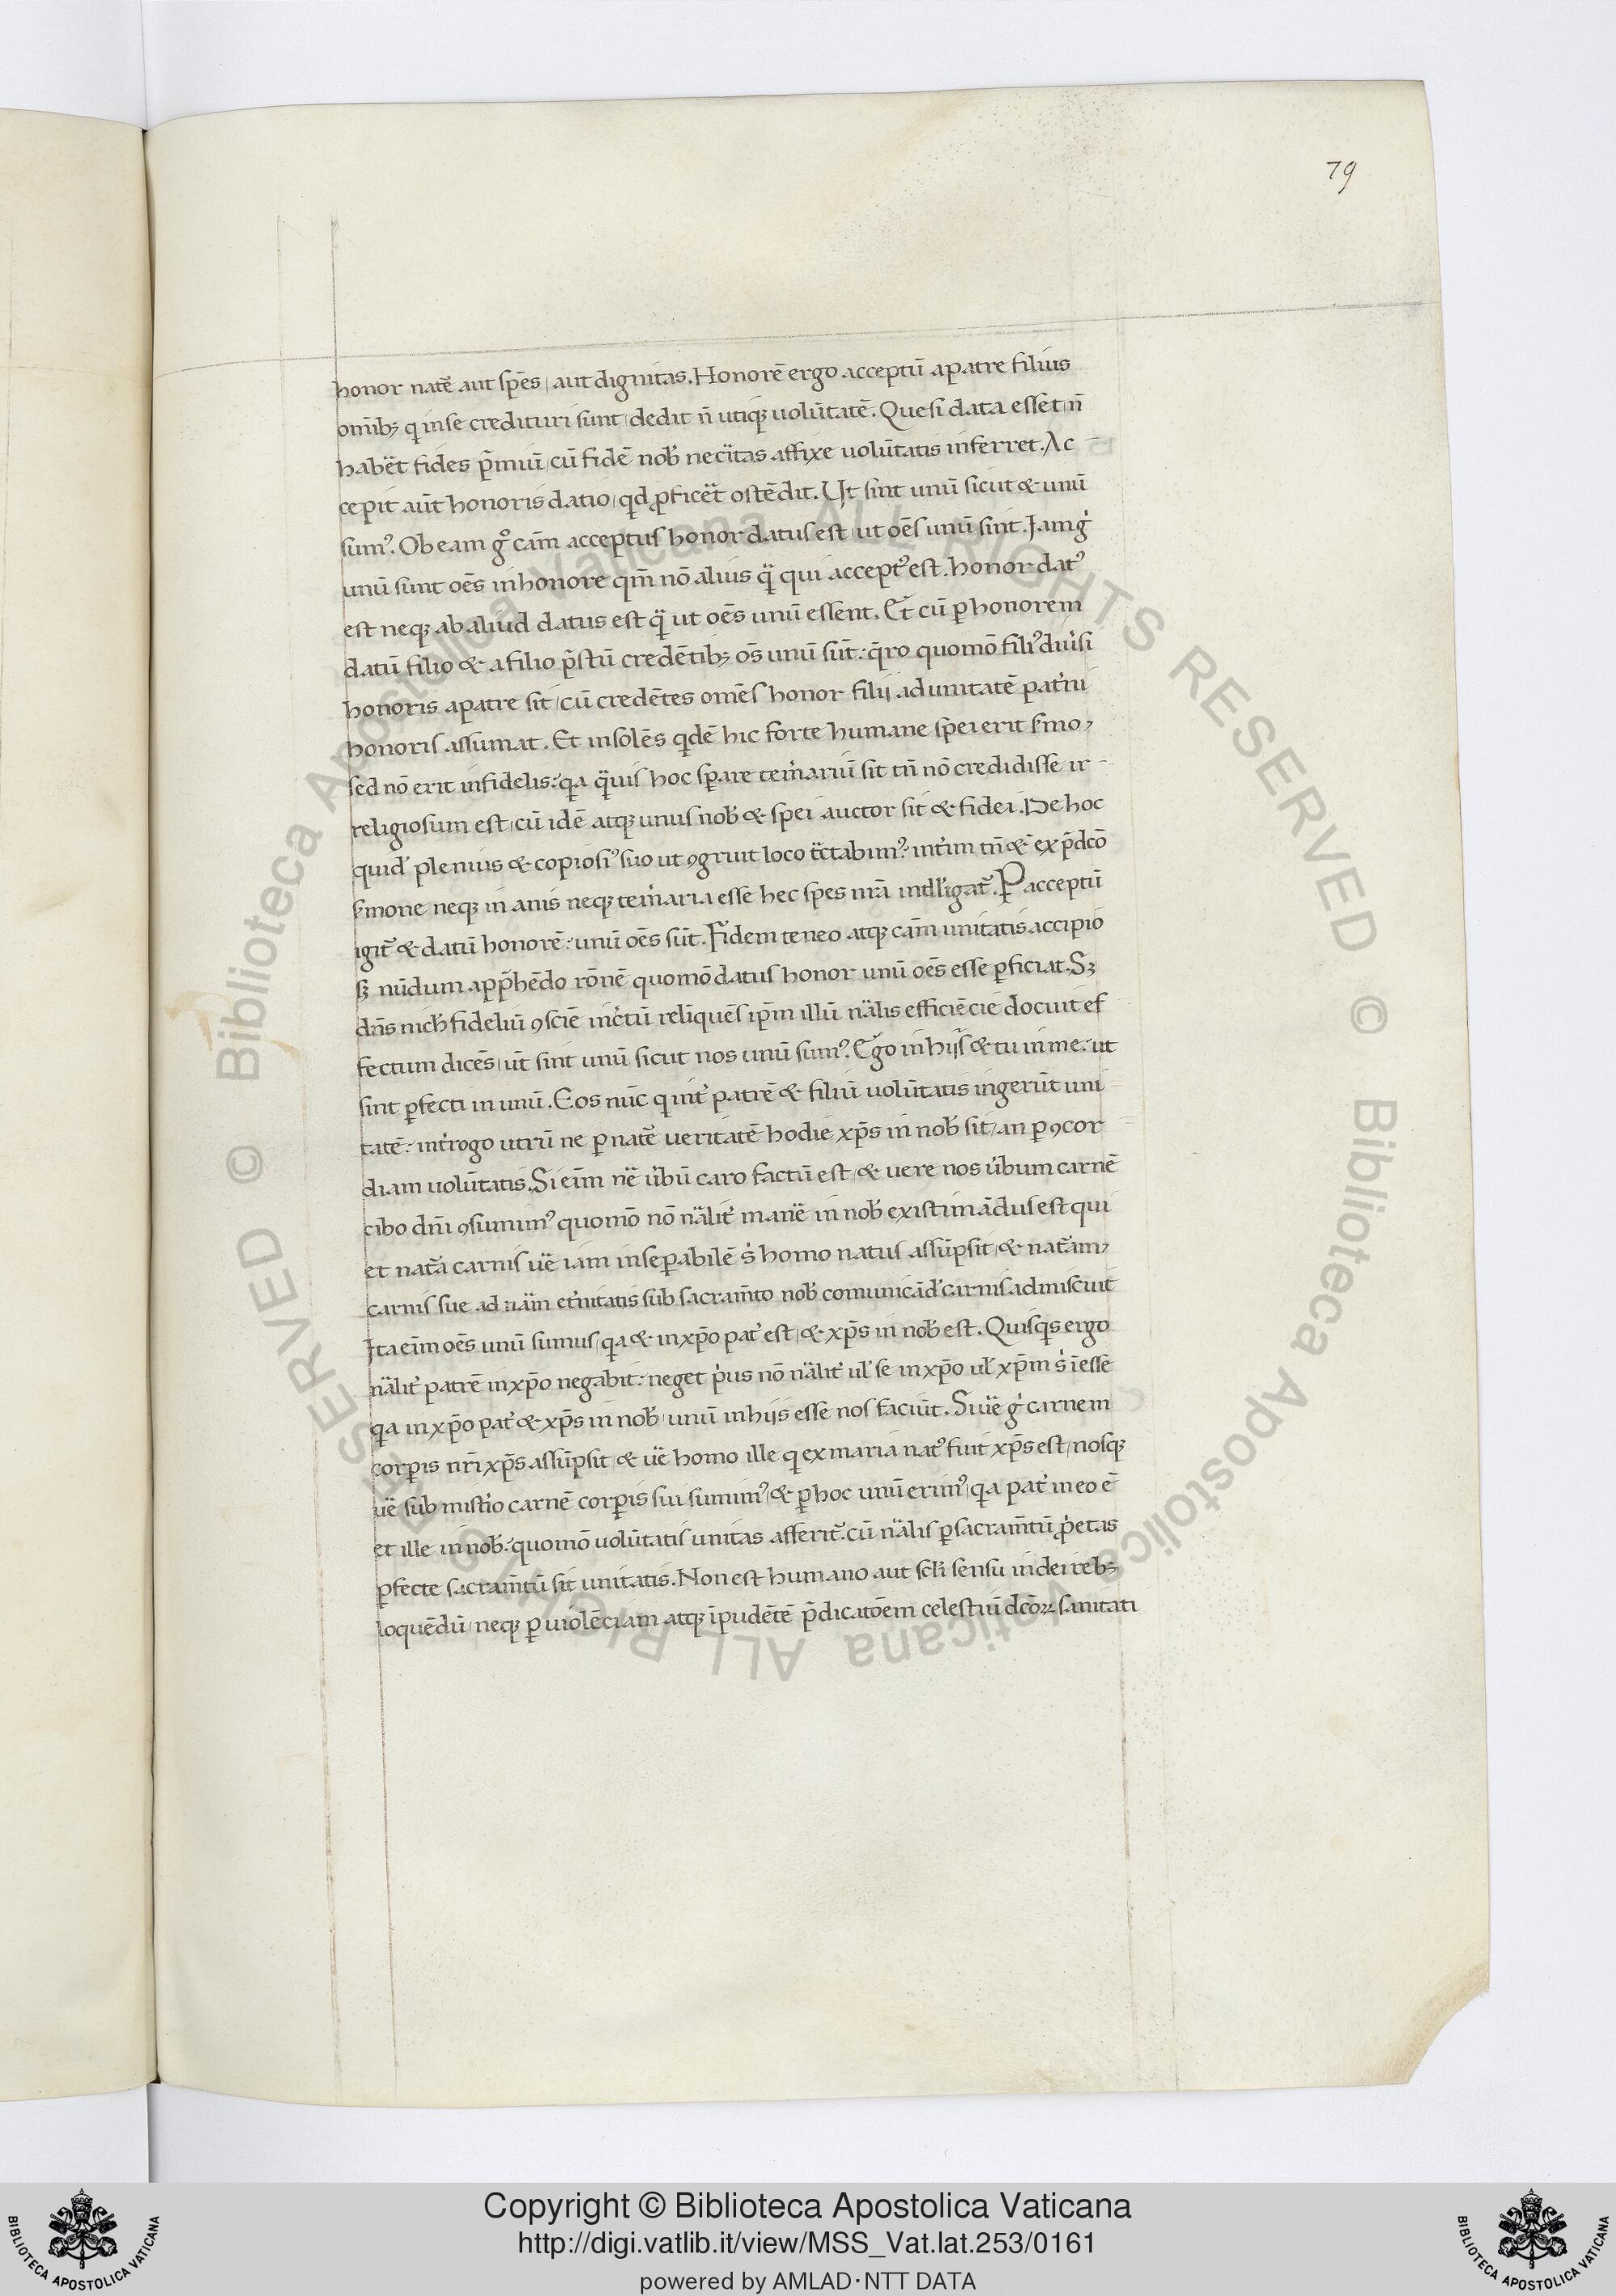 79
honor natē aut spēs, aut dignitas. Honorē ergo acceptū a patre filius
omīb; q in se credituri sunt, dedit n̄ utiq; uolūtatē. Que si data esset, n̄
habēt fides p̄miū, cū fidē nob̄ necītas affixe uolūtatis inferret. Ac
cepit aūt honoris datio, qd ꝓficēt ostēdit. Ut sint unū sicut & unū
sumꝰ. Ob eam gͦ cām acceptus honor datus est, ut oēs unū sint. Jam gͥ
unū sunt oēs in honore qm̄ nō alius q̄ qui acceptꝰ est. honor datꝰ
est neq; ab aliud datus est q̄ ut oēs unū essent. Et cū ꝑ honorem
datū filio & a filio p̄stū credētib; oēs unū sūt: q̄ro quomō filiꝰ diuͥsi
honoris a patre sit, cū credētes omēs honor filij ad unitatē patͥni
honoris assumat. Et insolēs qdē hic forte humane spei erit smo,
sed nō erit infidelis: qa q̄uis hoc sꝑare temͥariū sit tn̄ nō credidisse ir
religiosum est, cū idē atq; unus nob̄ & spei auctor sit & fidei. De hoc
quid plenius & copiosiꝰ suo ut ꝯgruit loco tc̄tabimꝰ: intͥim tn̄ & ex p̄dcō
smone neq; in anis neq; temͥaria esse hec spes nrā intllͥigat̄. Ꝑ acceptū
igit̄ & datū honorē: unū oēs sūt. Fidem teneo atq; cām unitatis accipio
s; nūdum app̄hēdo rōnē quomō datus honor unū oēs esse ꝑficiat. S;
dn̄s nich̄ fideliū ꝯsciē incͥtū relīquēs ipm̄ illū nālis efficiēcie docuit ef
fectum dicēs, ut sint unū sicut nos unū sumꝰ. Ego in hijs & tu in me: ut
sint ꝑfecti in unū. Eos nūc q intͥ patrē & filiū uolūtatis ingerūt uni
tatē: intͥrogo utrū ne ꝑ natē ueritatē hodie xp̄s in nob̄ sit, an ꝑ ꝯcor
diam uolūtatis. Si eīm uē uͥbū caro factū est, & uere nos uͥbum carnē
cibo dn̄i ꝯsumimꝰ quomō nō nālitͥ manē in nob̄ existimādus est qui
et natā carnis uē iam inseꝑabilē sͥ homo natus assūpsit, & natām,
carnis sue ad nām etͥnitatis sub sacram̄to nob̄ comunicād̄ carnis admiscuit
Ita eīm oēs unū sumus, qa & in xp̄o patͥ est, & xp̄s in nob̄ est. Quisqs ergo
nālitͥ patrē in xp̄o negabit: neget pͥus nō nālitͥ ul̄ se in xp̄o ul̄ xp̄m sͥ īesse
qa in xp̄o patͥ & xp̄s in nob̄, unū in hijs esse nos faciūt. Si uē gͥ carnem
corꝑis nr̄i xp̄s assūpsit, & uē homo ille q ex maria natꝰ fuit xp̄s est, nosq;
uē sub mistͥio carnē corꝑis sui sumimꝰ, & ꝑ hoc unū erimꝰ, qa patͥ in eo ē
et ille in nob̄: quomō uolūtatis unitas asserit̄, cū nālis ꝑ sacram̄tū ꝓpͥetas
ꝑfecte sacram̄tū sit unitatis. Non est humano aut scl̄i sensu in dei reb;
loquēdū, neq; ꝑ uiolēciam atq; īpudētē p̄dicatōem celestiū dcōꝝ sanitati
Copyright © Biblioteca Apostolica Vaticana
http://digi.vatlib.it/view/MSS_Vat.lat.253/0161
powered by AMLAD·NTT DATA